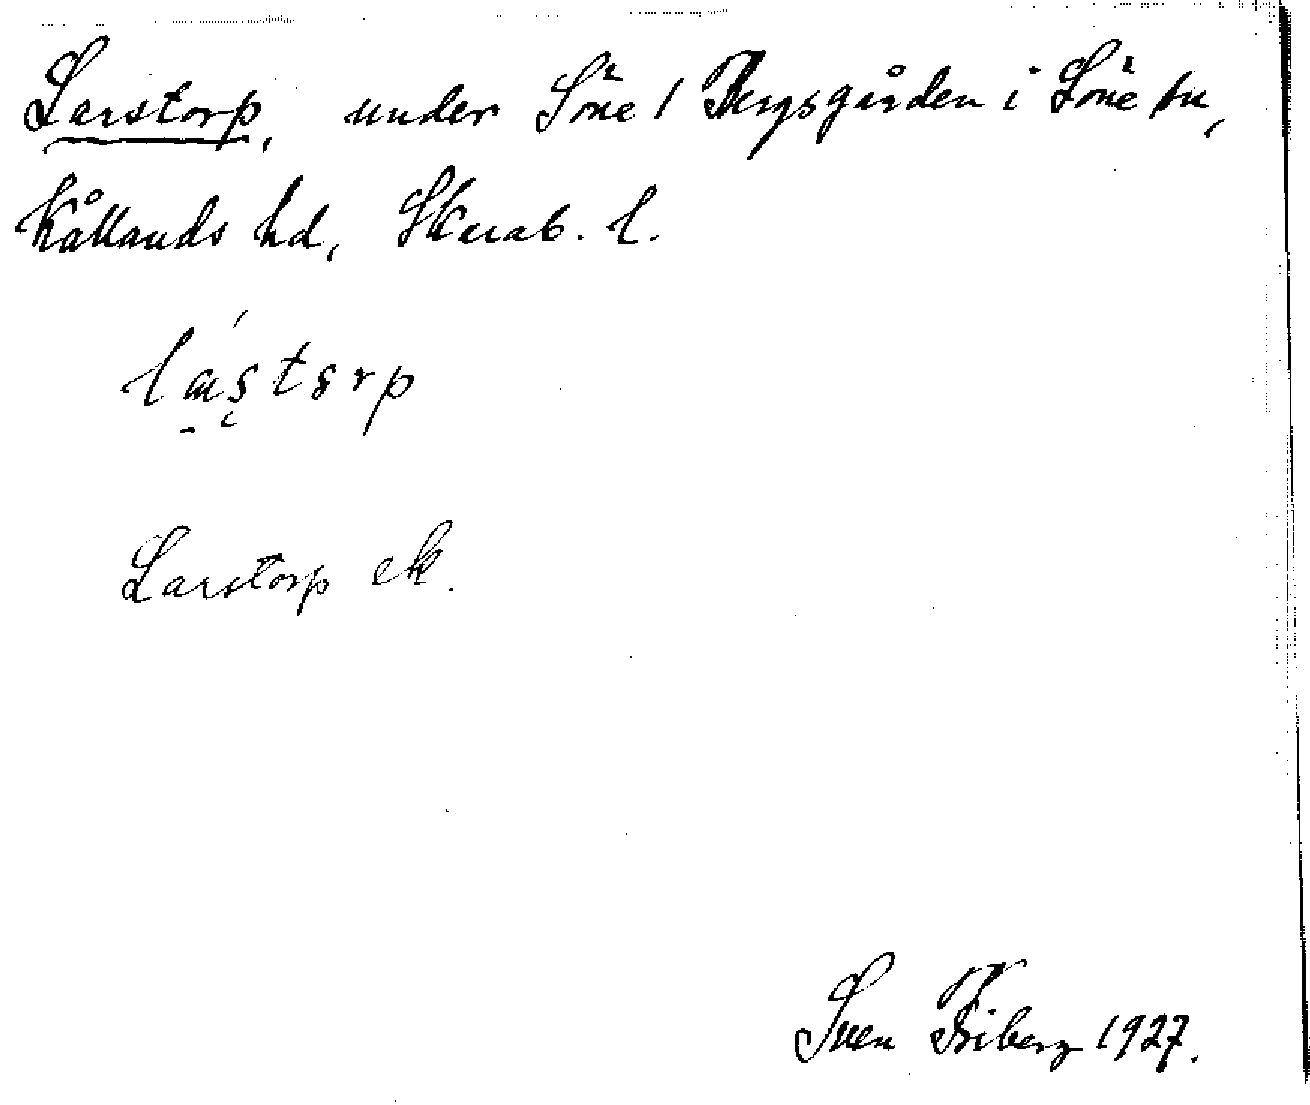 Larstorp, under Söne 1 Bergsgården i Söne sn,
Kållands hd, Skarab. l.
Larstorp ek.
Sven Friberg 1927.